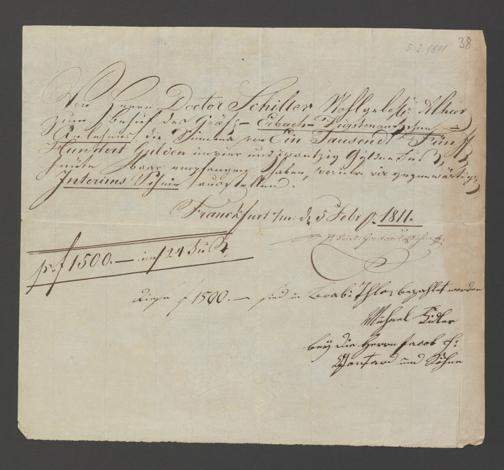 5.2.1811 38
Von Herrn Doctor Schiller Wohlgeb.
zum Behuf des Gräfl. Erbach-Fürstenauischen
Anlehens die Summe von Ein Tausend Fünf
Hundert Gulden im vier und zwantzig Gulden Fus
heute baar empfangen haben, worüber wir gegenwärtige
Interims Schein ausstellen.
Franckfurt /m. d. 5 Febr. 1811.
p. f 1500.— im f 24 Fus
Diese f 1500.— sind in Brab. Thlr bezahlt worden
Michael
bey die Herrn Jacob
Gontard und Söhne